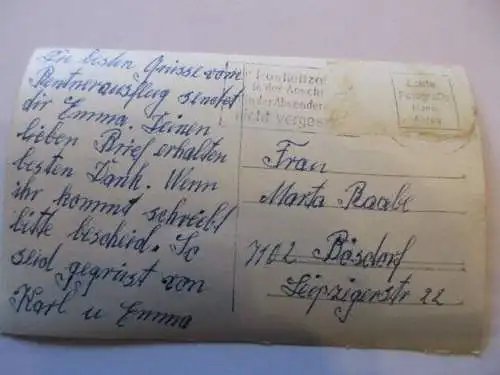 Die besten Grüsse vom
Rentnerausflug sendet
dir Emma. Deinen
lieben Brief erhalten
besten Dank. Wenn
ihr kommt schreibt
bitte bescheid. So
seid gegrüst von
Karl u Emma
Postleitzahl
in der Anschrift
in der Absender
nicht vergessen
Echte
Fotografie
Frau
Marta Raabe
7102 Bösdorf
Leipzigerstr 22